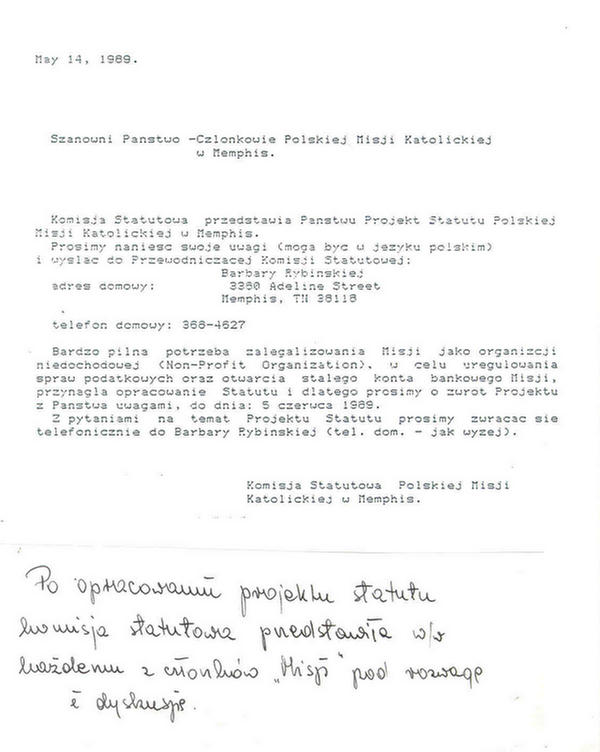 May 14, 1989.
Szanowni Panstwo -Czlonkowie Polskiej Misji Katolickiej
w Memphis.
Komisja Statutowa przedstawia Panstwu Projekt Statutu Polskiej
Misji Katolickiej w Memphis.
Prosimy naniesc swoje uwagi (moga byc w jezyku polskim)
i wyslac do Przewodniczacej Komisji Statutowej:
Barbary Rybinskiej
adres domowy: 3350 Adeline Street
Memphis, TN 38118
telefon domowy: 368-4627
Bardzo pilna potrzeba zalegalizowania Misji jako organizcji
niedochodowej (Non-Profit Organization), w celu uregulowania
spraw podatkowych oraz otwarcia stalego konta bankowego Misji,
przynagla opracowanie Statutu i dlatego prosimy o zwrot Projektu
z Panstwa uwagami, do dnia: 5 czerwca 1989.
Z pytaniami na temat Projektu Statutu prosimy zwracac sie
telefonicznie do Barbary Rybinskiej (tel. dom. - jak wyzej).
Komisja Statutowa Polskiej Misji
Katolickiej w Memphis.
Po opracowaniu projektu statutu
komisja statutowa przedstawiła w/w
każdemu z członków „Misji" pod rozwagę
i dyskusję.